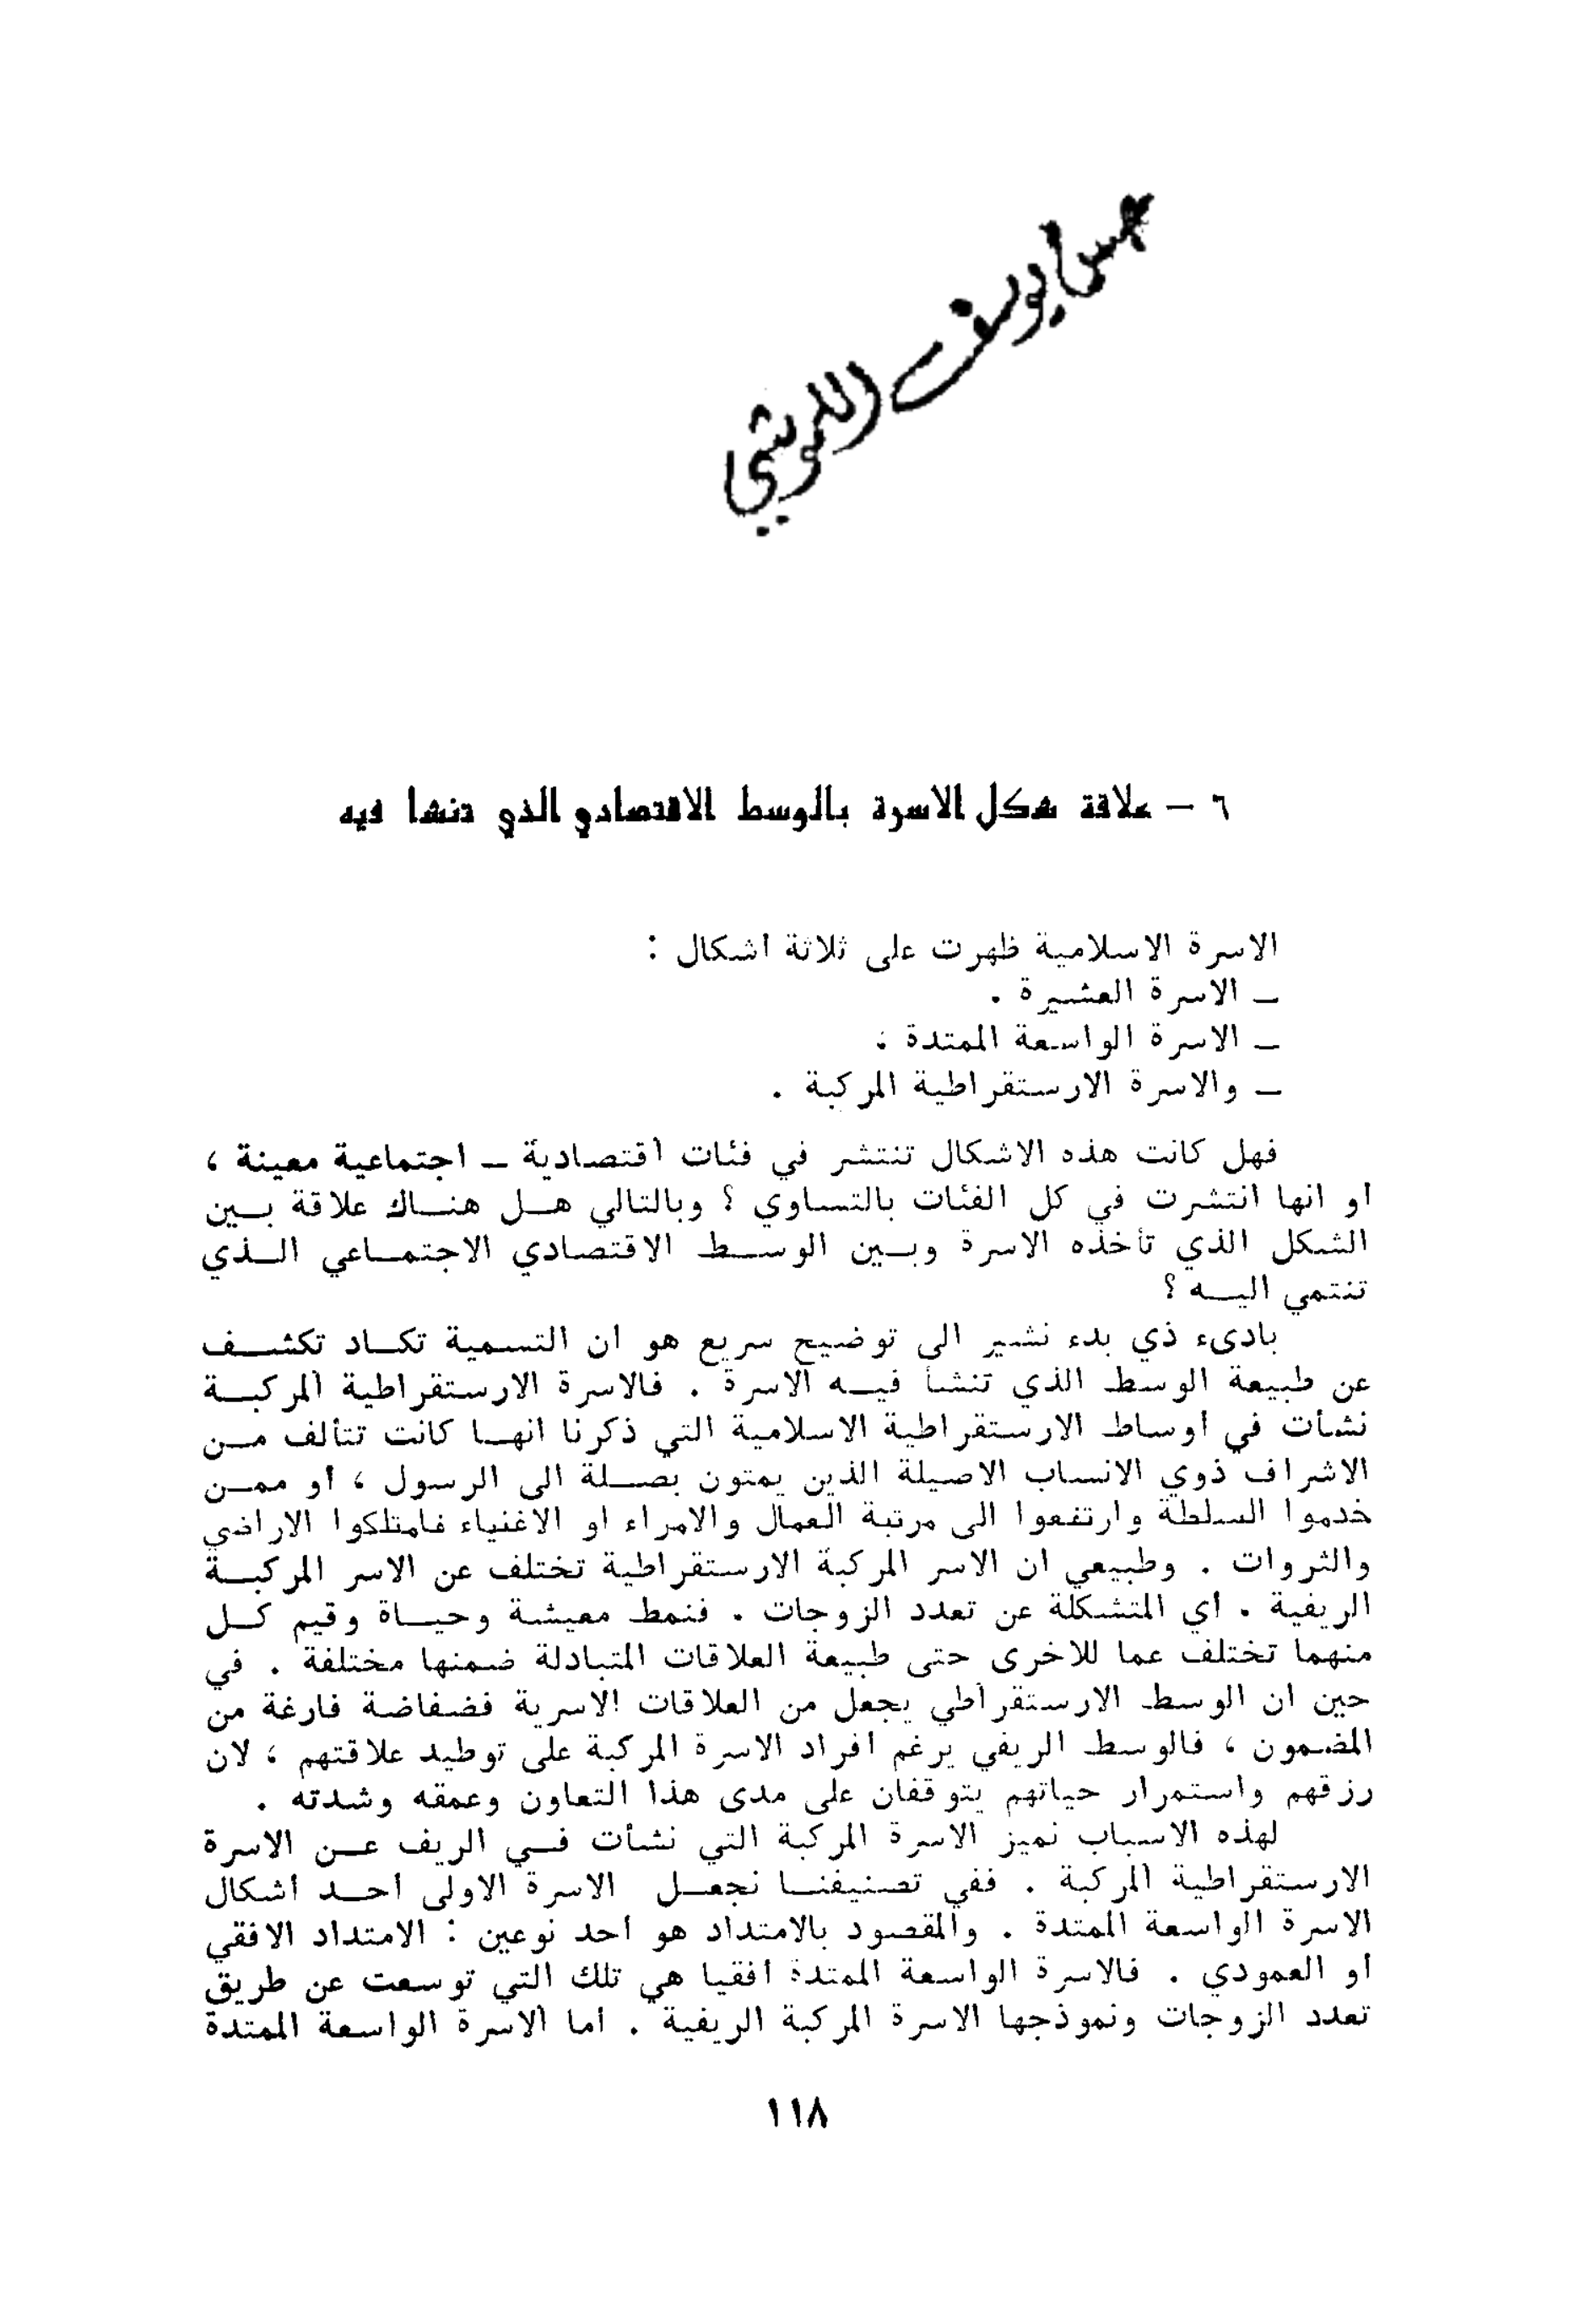 يوسف
٦ – علاقة شكل الاسرة بالوسط الاقتصادي الذي تنشا فيه
الاسرة الاسلامية ظهرت على ثلاثة أشكال :
– الاسرة العشيرة .
– الاسرة الواسعة الممتدة .
– والاسرة الارستقراطية المركبة .
فهل كانت هذه الاشكال تنتشر في فئات اقتصادية – اجتماعية معينة ،
أو انها انتشرت في كل الفئات بالتساوي ؟ وبالتالي هل هناك علاقة بين
الشكل الذي تأخذه الاسرة وبين الوسط الاقتصادي الاجتماعي الذي
تنتمي اليه ؟
بادىء ذي بدء نشير الى توضيح سريع هو ان التسمية تكاد تكشف
عن طبيعة الوسط الذي تنشأ فيه الاسرة . فالاسرة الارستقراطية المركبة
نشأت في أوساط الارستقراطية الاسلامية التي ذكرنا انها كانت تتألف من
الاشراف ذوي الانساب الاصيلة الذين يمتون بصلة الى الرسول ، أو ممن
خدموا السلطة وارتفعوا الى مرتبة العمال والامراء او الاغنياء فامتلكوا الاراضي
والثروات . وطبيعي ان الاسر المركبة الارستقراطية تختلف عن الاسر المركبة
الريفية . أي المتشكلة عن تعدد الزوجات . فنمط معيشة وحياة وقيم كل
منهما تختلف عما للاخرى حتى طبيعة العلاقات المتبادلة ضمنها مختلفة . في
حين ان الوسط الارستقراطي يجعل من العلاقات الاسرية فضفاضة فارغة من
المضمون ، فالوسط الريفي يرغم افراد الاسرة المركبة على توطيد علاقتهم ، لان
رزقهم واستمرار حياتهم يتوقفان على مدى هذا التعاون وعمقه وشدته .
لهذه الاسباب نميز الاسرة المركبة التي نشأت في الريف عن الاسرة
الارستقراطية المركبة . ففي تصنيفنا نجعل الاسرة الاولى أحد أشكال
الاسرة الواسعة الممتدة . والمقصود بالامتداد هو أحد نوعين : الامتداد الافقي
أو العمودي . فالاسرة الواسعة الممتدة أفقيا هي تلك التي توسعت عن طريق
تعدد الزوجات ونموذجها الاسرة المركبة الريفية . أما الاسرة الواسعة الممتدة
١١٨